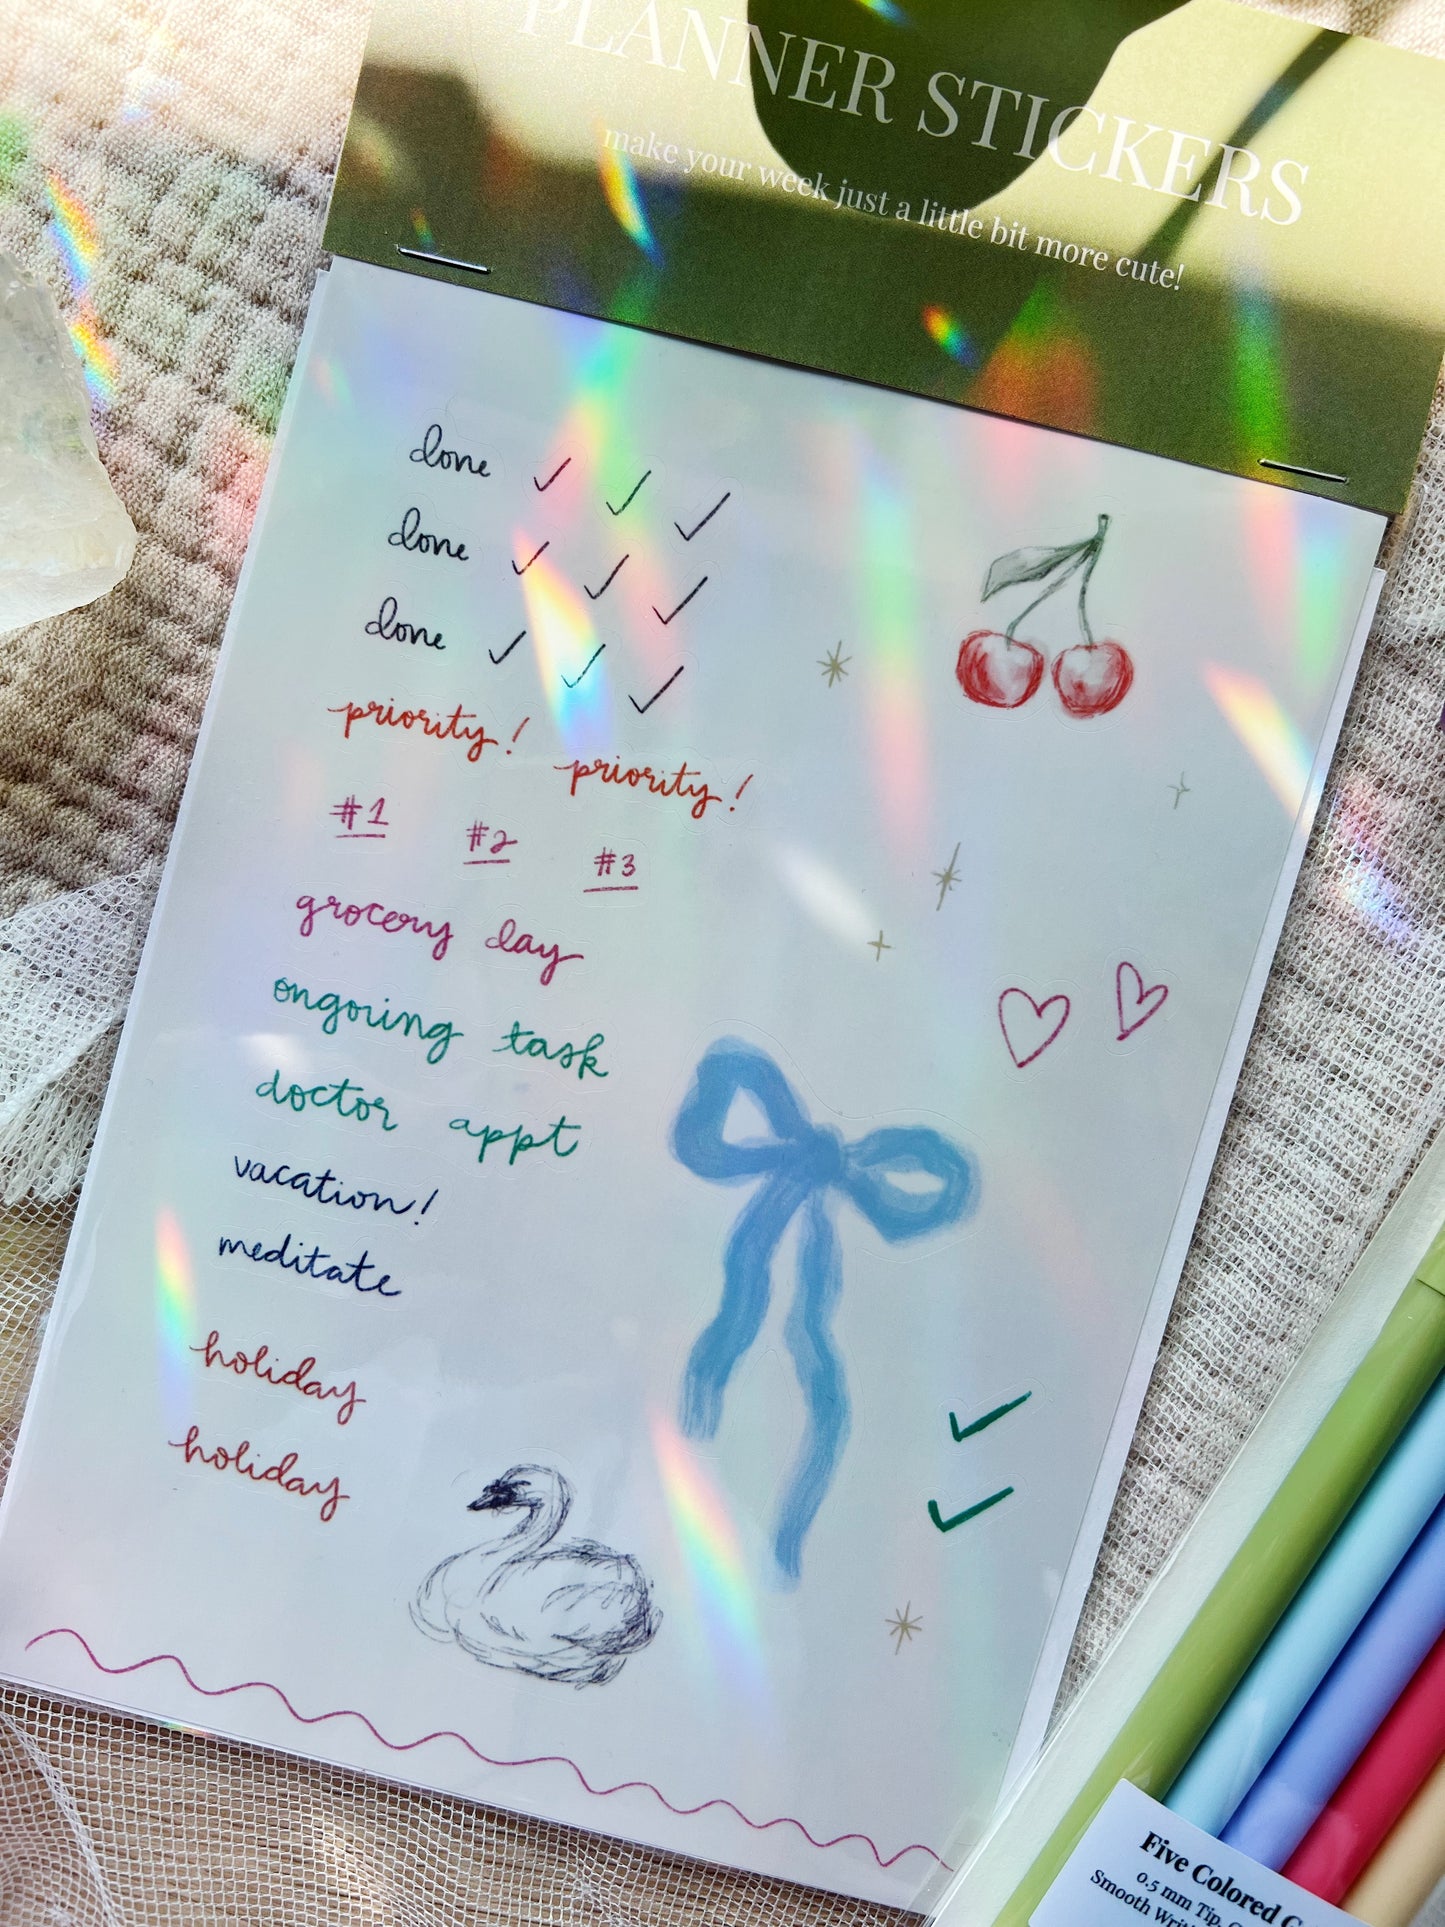 PLANNER STICKERS
make your week just a little bit more cute!
done
done
done
priority! priority!
#1 #2 #3
grocery day
ongoing task
doctor appt
vacation!
meditate
holiday
holiday
Five Colored
0.5 mm Tip,
Smooth